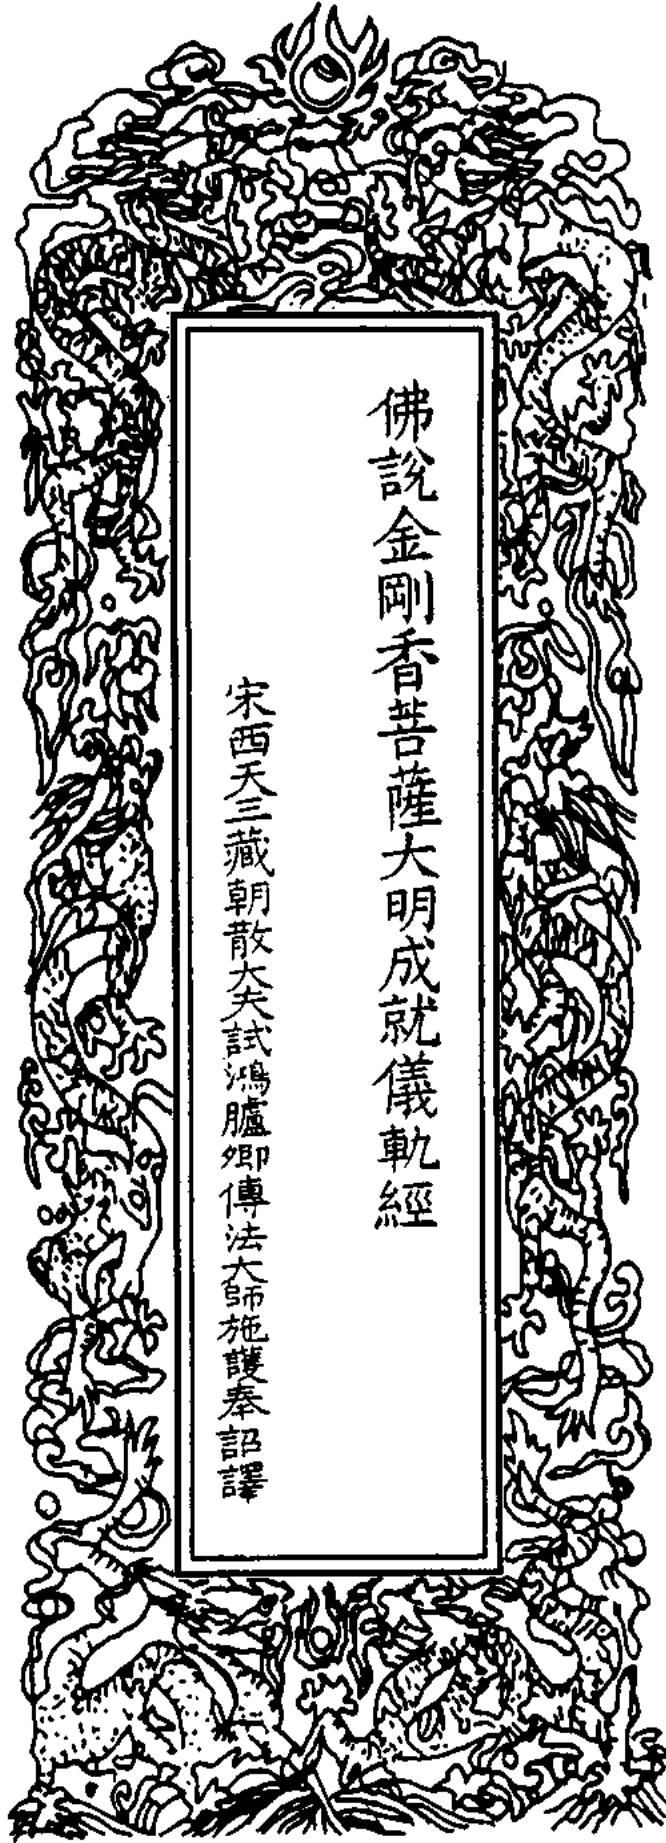 佛說金剛香菩薩大明成就儀軌經
宋西天三藏朝散大夫試鴻臚卿傳法大師施護奉詔譯